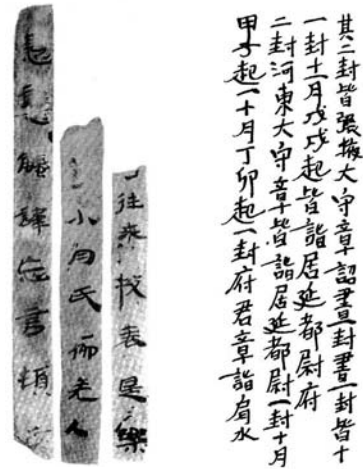 其二封皆張掖大守章詔書一封書一封皆十
一封十一月戊戌起皆詣居延都尉府
二封河東大守章皆詣居延都尉一封十月
甲子起一十月丁卯起一封府君章詣肩水
往來表是樂
小月氏柳羌人
譯忘言頓